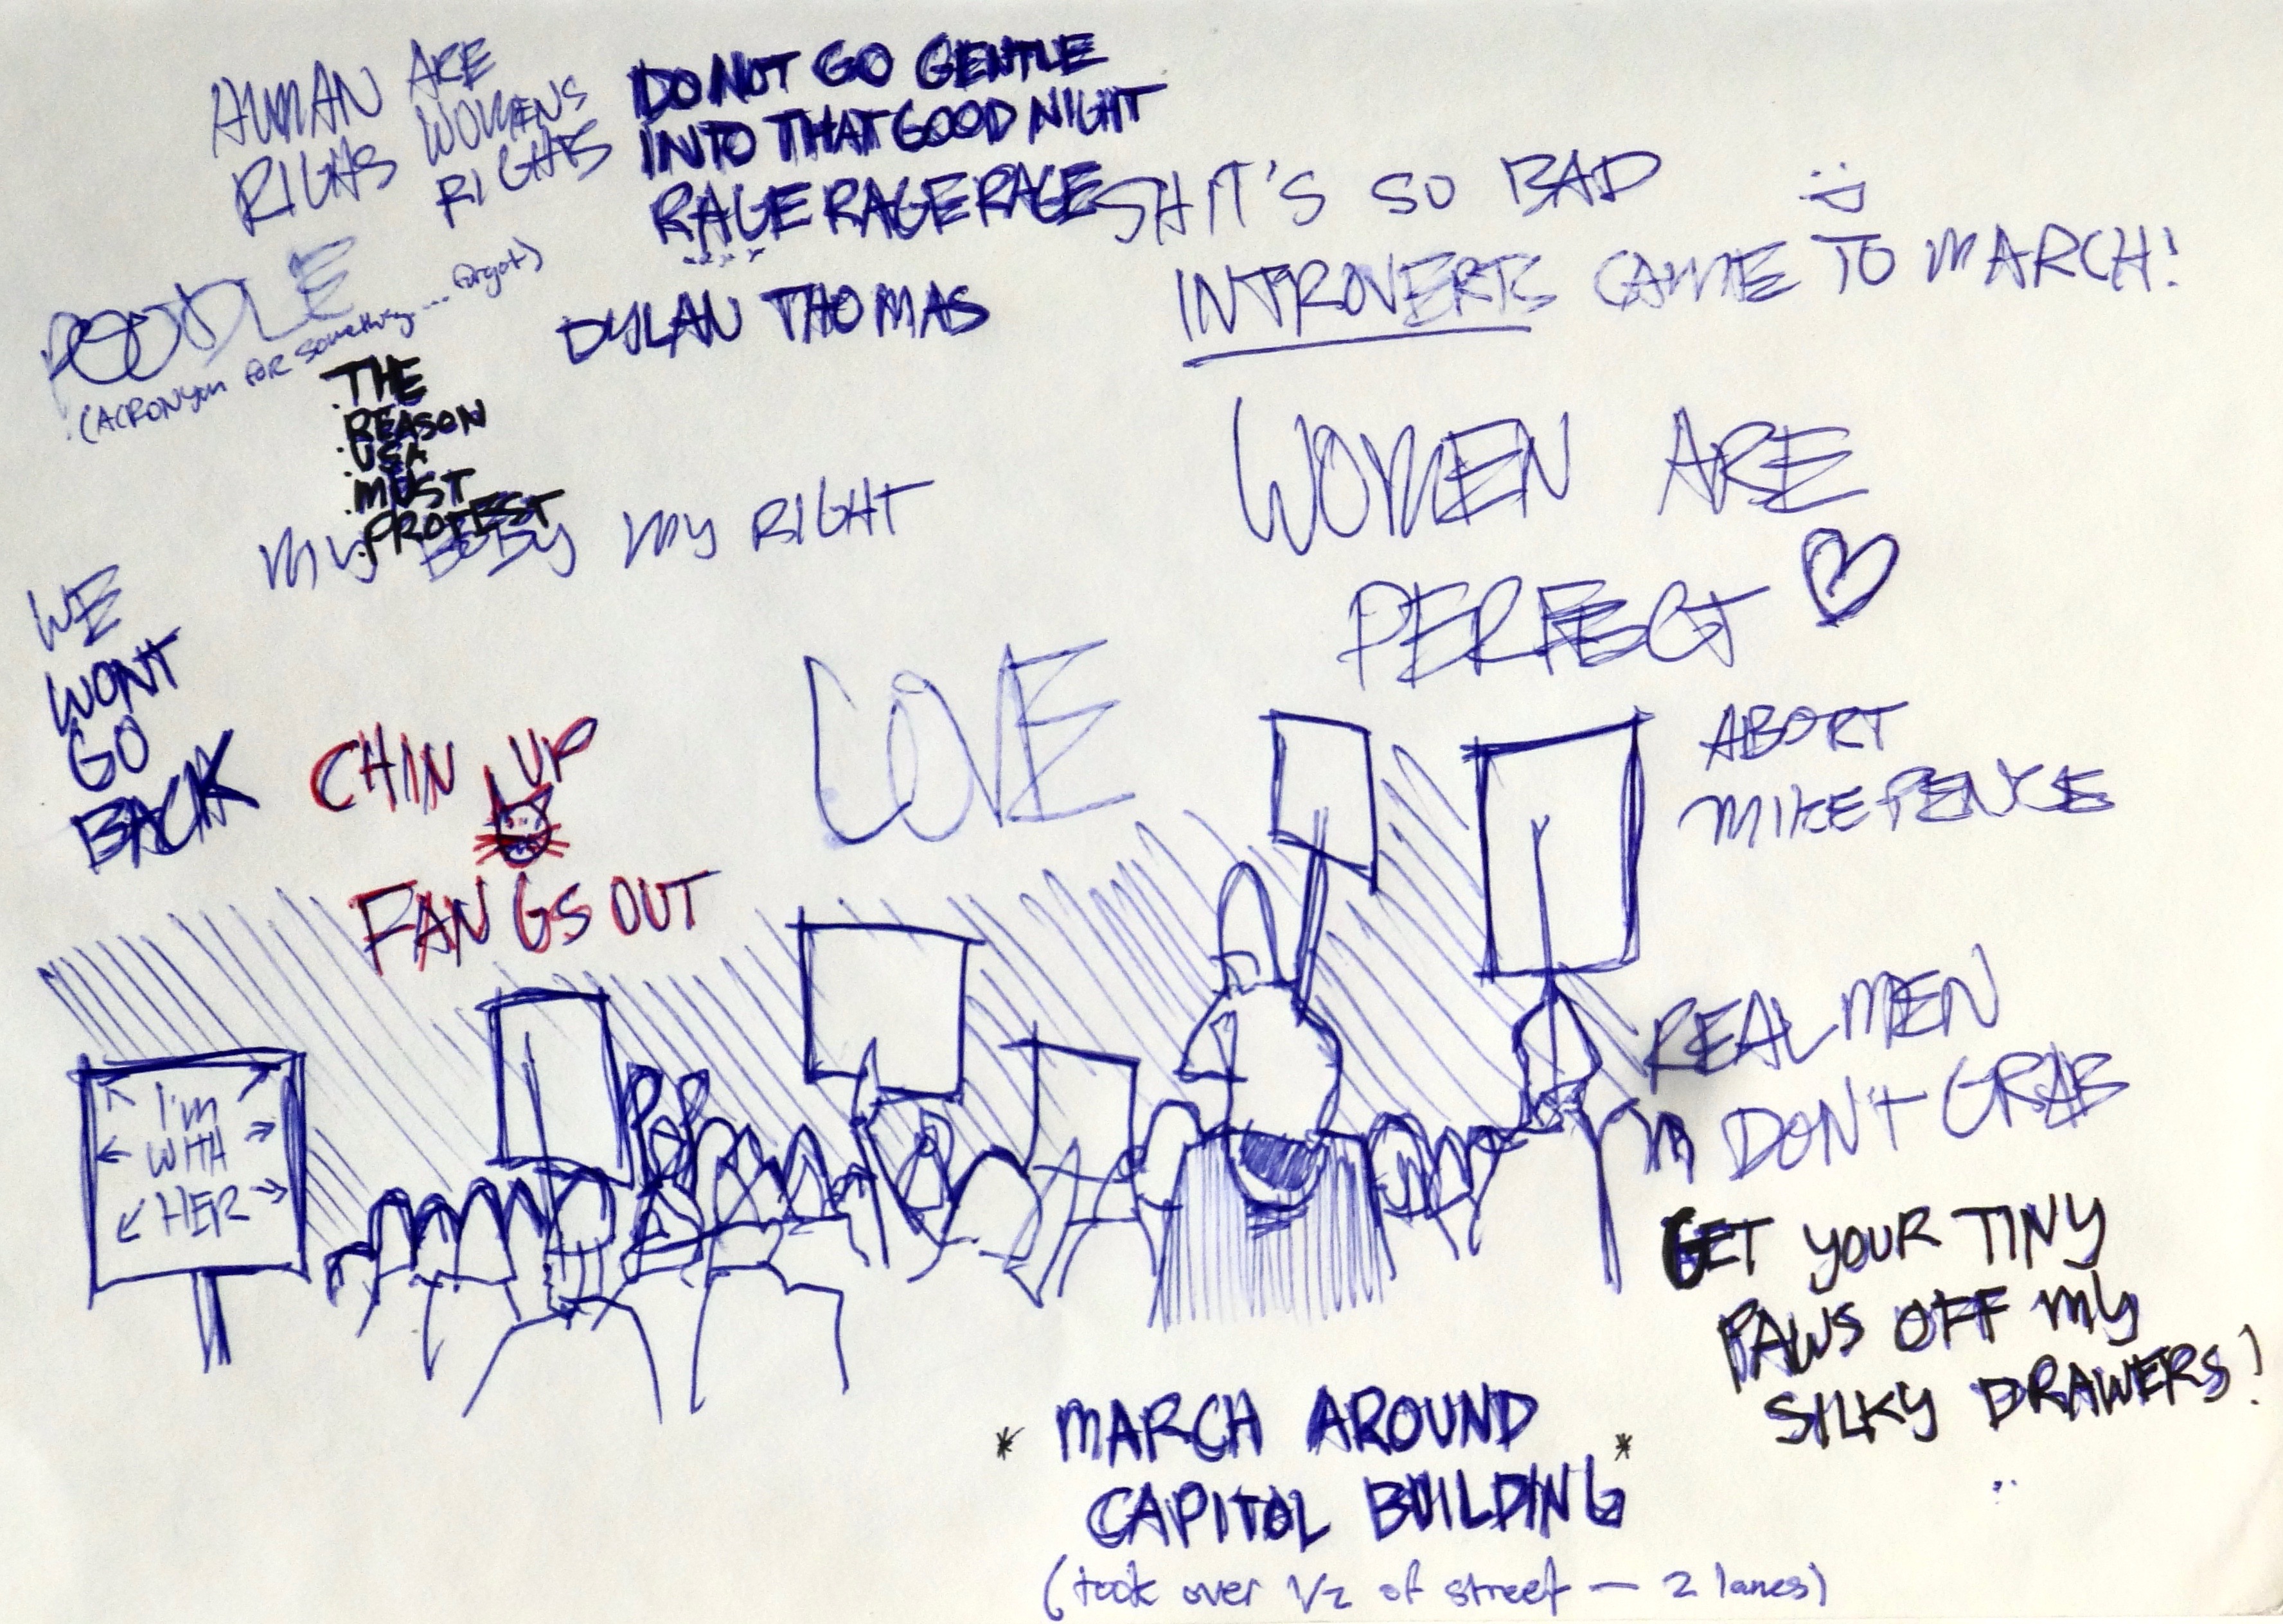 HUMAN ARE
RIGHS WOMENS
RIGHTS
DO NOT GO GENTLE
INTO THAT GOOD NIGHT
RAGE RAGE RAGE
....
DYLAN THOMAS
SHIT'S SO BAD
INTROVERTS CAME TO MARCH!
POODLE
(ACRONYM FOR something... forgot)
.THE
.REASON
.USA
.MUST
.PROTEST
My BODY My RIGHT
WOMEN ARE
PERFECT
WE
WONT
GO
BACK
CHIN UP
FANGS OUT
LOVE
ABORT
MIKE PENCE
I'm
WITH
HER
REAL MEN
DON't GRAB
GET YOUR TINY
PAWS OFF My
SILKY DRAWERS!
* MARCH AROUND *
CAPITOL BUILDING
(took over 1/2 of street — 2 lanes)